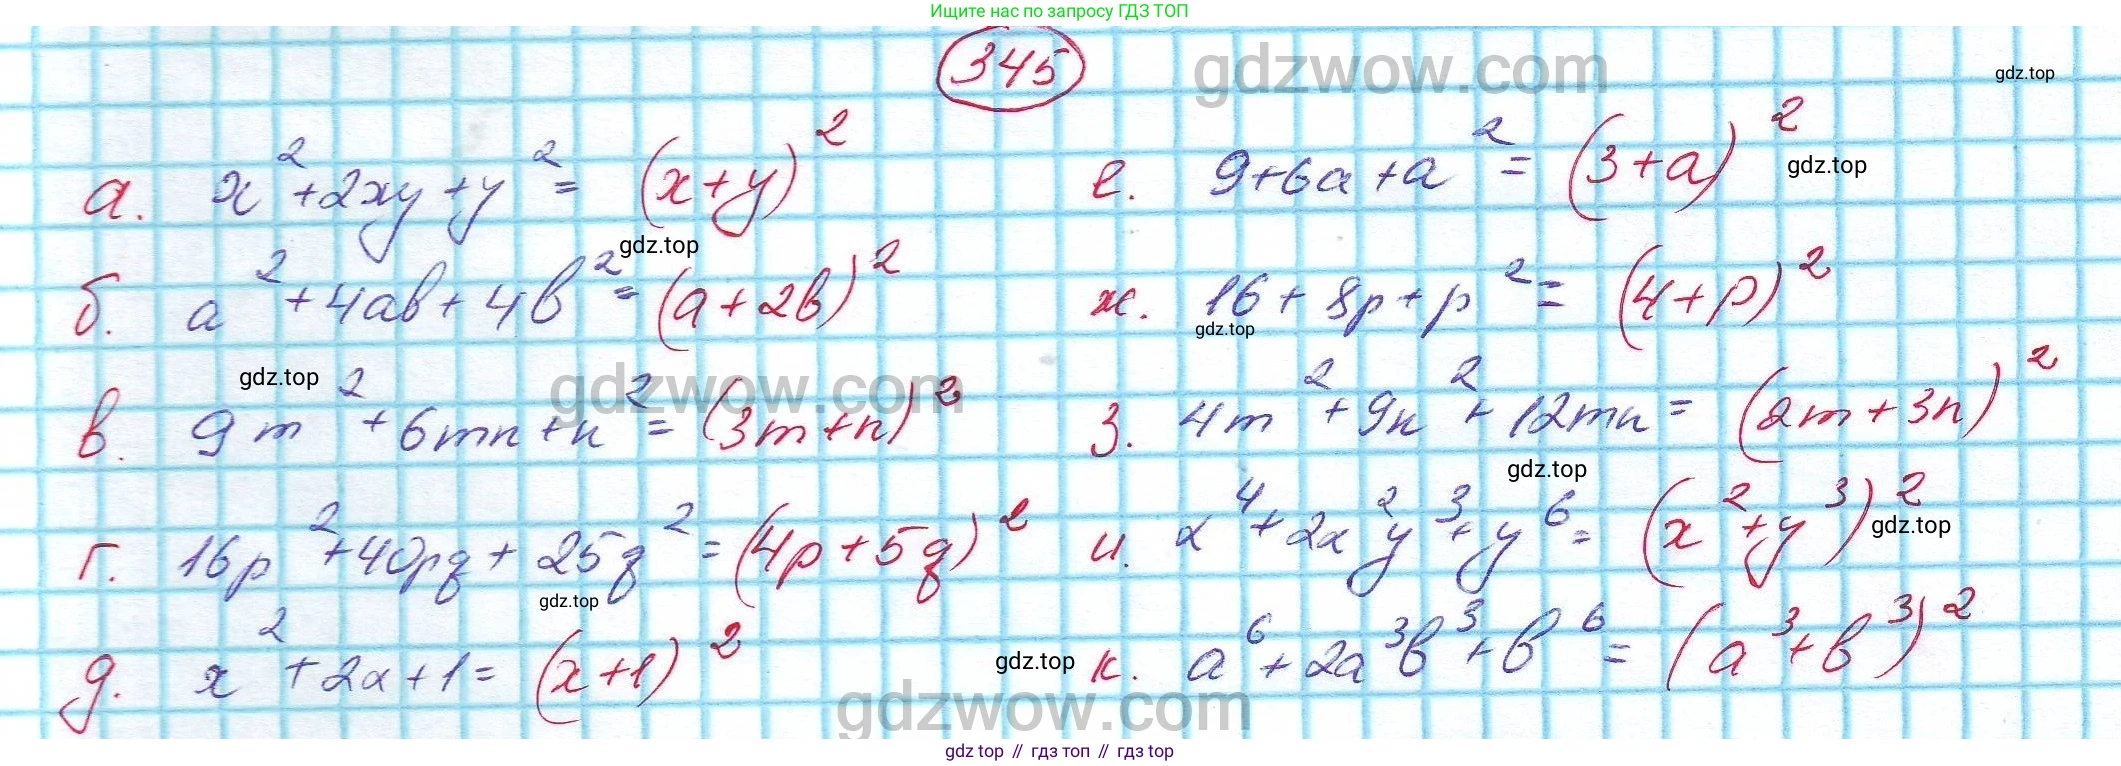 Ищите нас по запросу ГДЗ ТОП
345
gdzwow.com
gdz.top
а. x²+2xy+y²= (x+y)²
gdz.top
б. a²+4ab+4b²=(a+2b)²
gdz.top
gdzwow.com
в. 9m²+6mn+n²=(3m+n)²
г. 16p²+40pq+25q²=(4p+5q)²
gdz.top
д. x²+2x+1=(x+1)²
е. 9+6a+a²=(3+a)²
gdz.top
ж. 16+8p+p²=(4+p)²
gdz.top
з. 4m²+9n²+12mn=(2m+3n)²
gdz.top
и. x⁴+2x²y³+y⁶=(x²+y³)²
gdz.top
gdz.top
к. a⁶+2a³b³+b⁶=(a³+b³)²
gdzwow.com
gdz top // гдз топ // гдз top